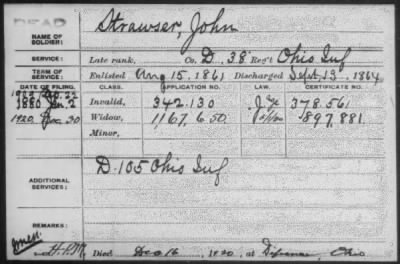 DEAD
Strawser, John
NAME OF SOLDIER:
SERVICE: Late rank, Co. D. 38 Reg't Ohio Inf
TERM OF SERVICE: Enlisted Aug 15, 1861 Discharged Sept. 13, 1864
DATE OF FILING. CLASS. APPLICATION NO. LAW. CERTIFICATE NO.
1880 Jan. 2 Invalid, 342.130 378.561
1920 Dec. 30 Widow, 1167.650 897.881
Minor,
D. 105 Ohio Inf
ADDITIONAL SERVICES:
REMARKS:
Died Dec 16, 1920, at Defiance, Ohio